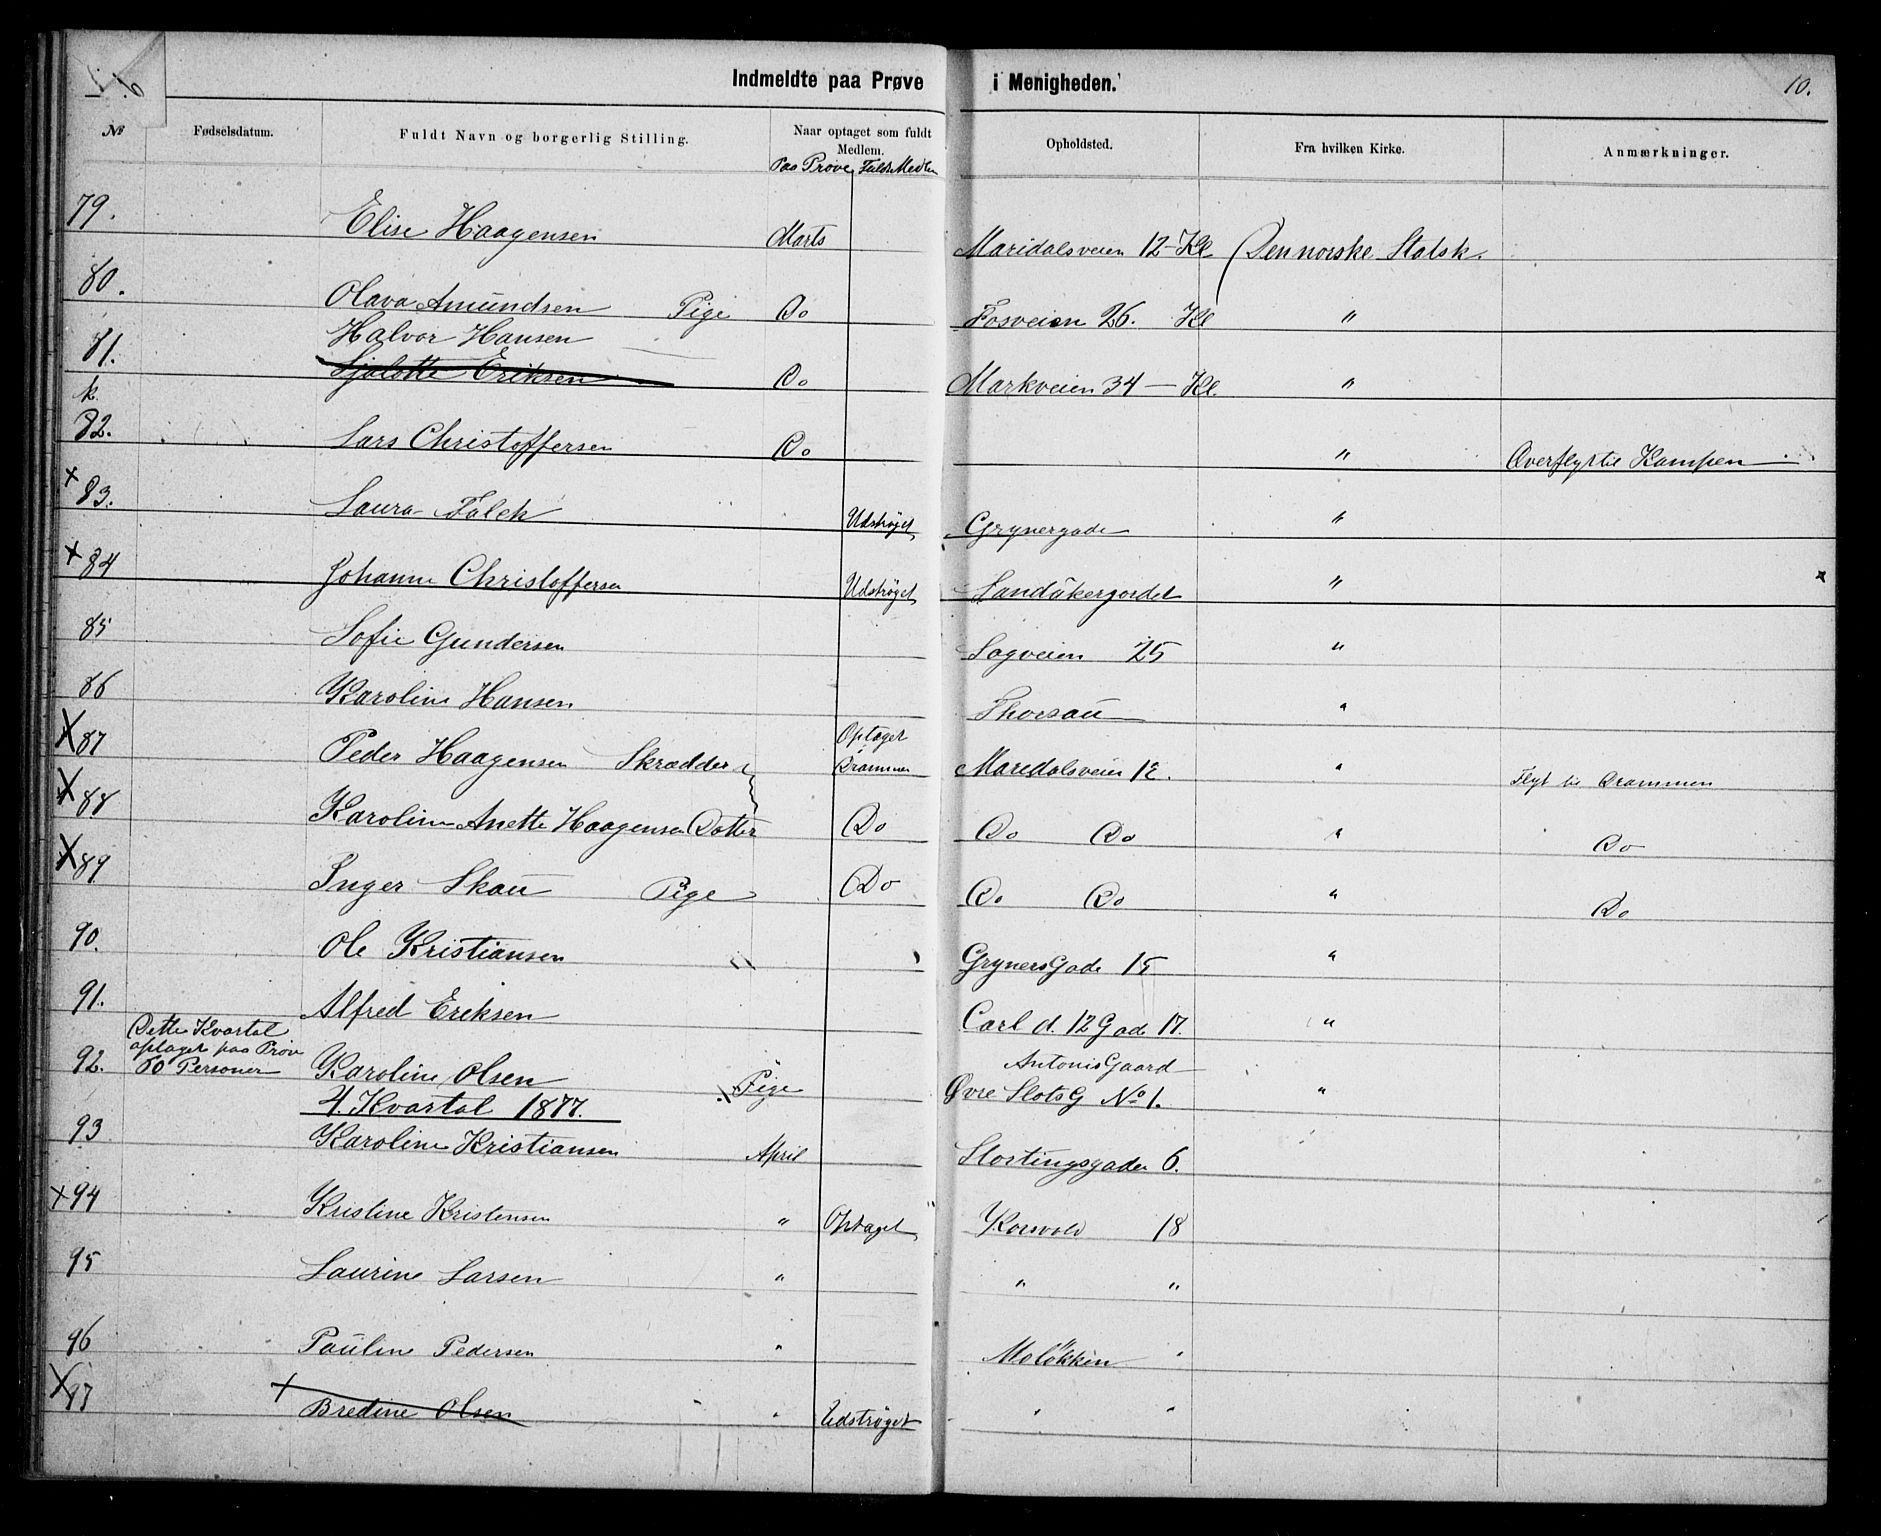 Indmeldte paa Prøve i Menigheden. 10.
№ Fødselsdatum. Fuldt Navn og borgerlig Stilling. Naar optaget som fuldt Medlem. Opholdsted. Fra hvilken Kirke. Anmærkninger.
Paa Prøve Fuldt Medlem
79. Elise Haagensen Marts Maridalsveien 12 - Kl Den norske Statsk.
80. Olava Amundsen Pige Do Fosveien 26. Kl "
Halvor Hansen
81. Sjalotte Eriksen Do Markveien 34 - Kl. "
k.
82. Lars Christoffersen Do " Overflyt til Kampen
x 83. Laura Falck Udstrøget Grynergade "
x 84 Johanne Christoffersen Udstrøget Sandåkergordet " x
85 Sofie Gundersen Sagveien 25 "
86 Karoline Hansen Thorsau "
X 87 Peder Haagensen Skrædder Optaget Drammen Maridalsveien 12. " Flyt til Drammen
X 88 Karoline Anette Haagensen Dotter Do Do Do " Do
X 89 Inger Skau Pige Do Do Do " Do
90. Ole Kristiansen " Gryners Gade 15 "
91. Alfred Eriksen Carl d. 12 Gade 17. "
Dette Kvartal
optaget paa Prøve
60 Personer
Antonis Gaard
92. Karoline Olsen Pige Øvre Slots G No 1. "
4. Kvartal 1877.
93 Karoline Kristiansen April Stortingsgaden 6.
x 94 Kristine Kristensen " Optaget Korsvold 18
95 Laurine Larsen " " "
96 Pauline Pedersen " Moløkken "
X 97 Bredine Olsen " Udstrøget " "